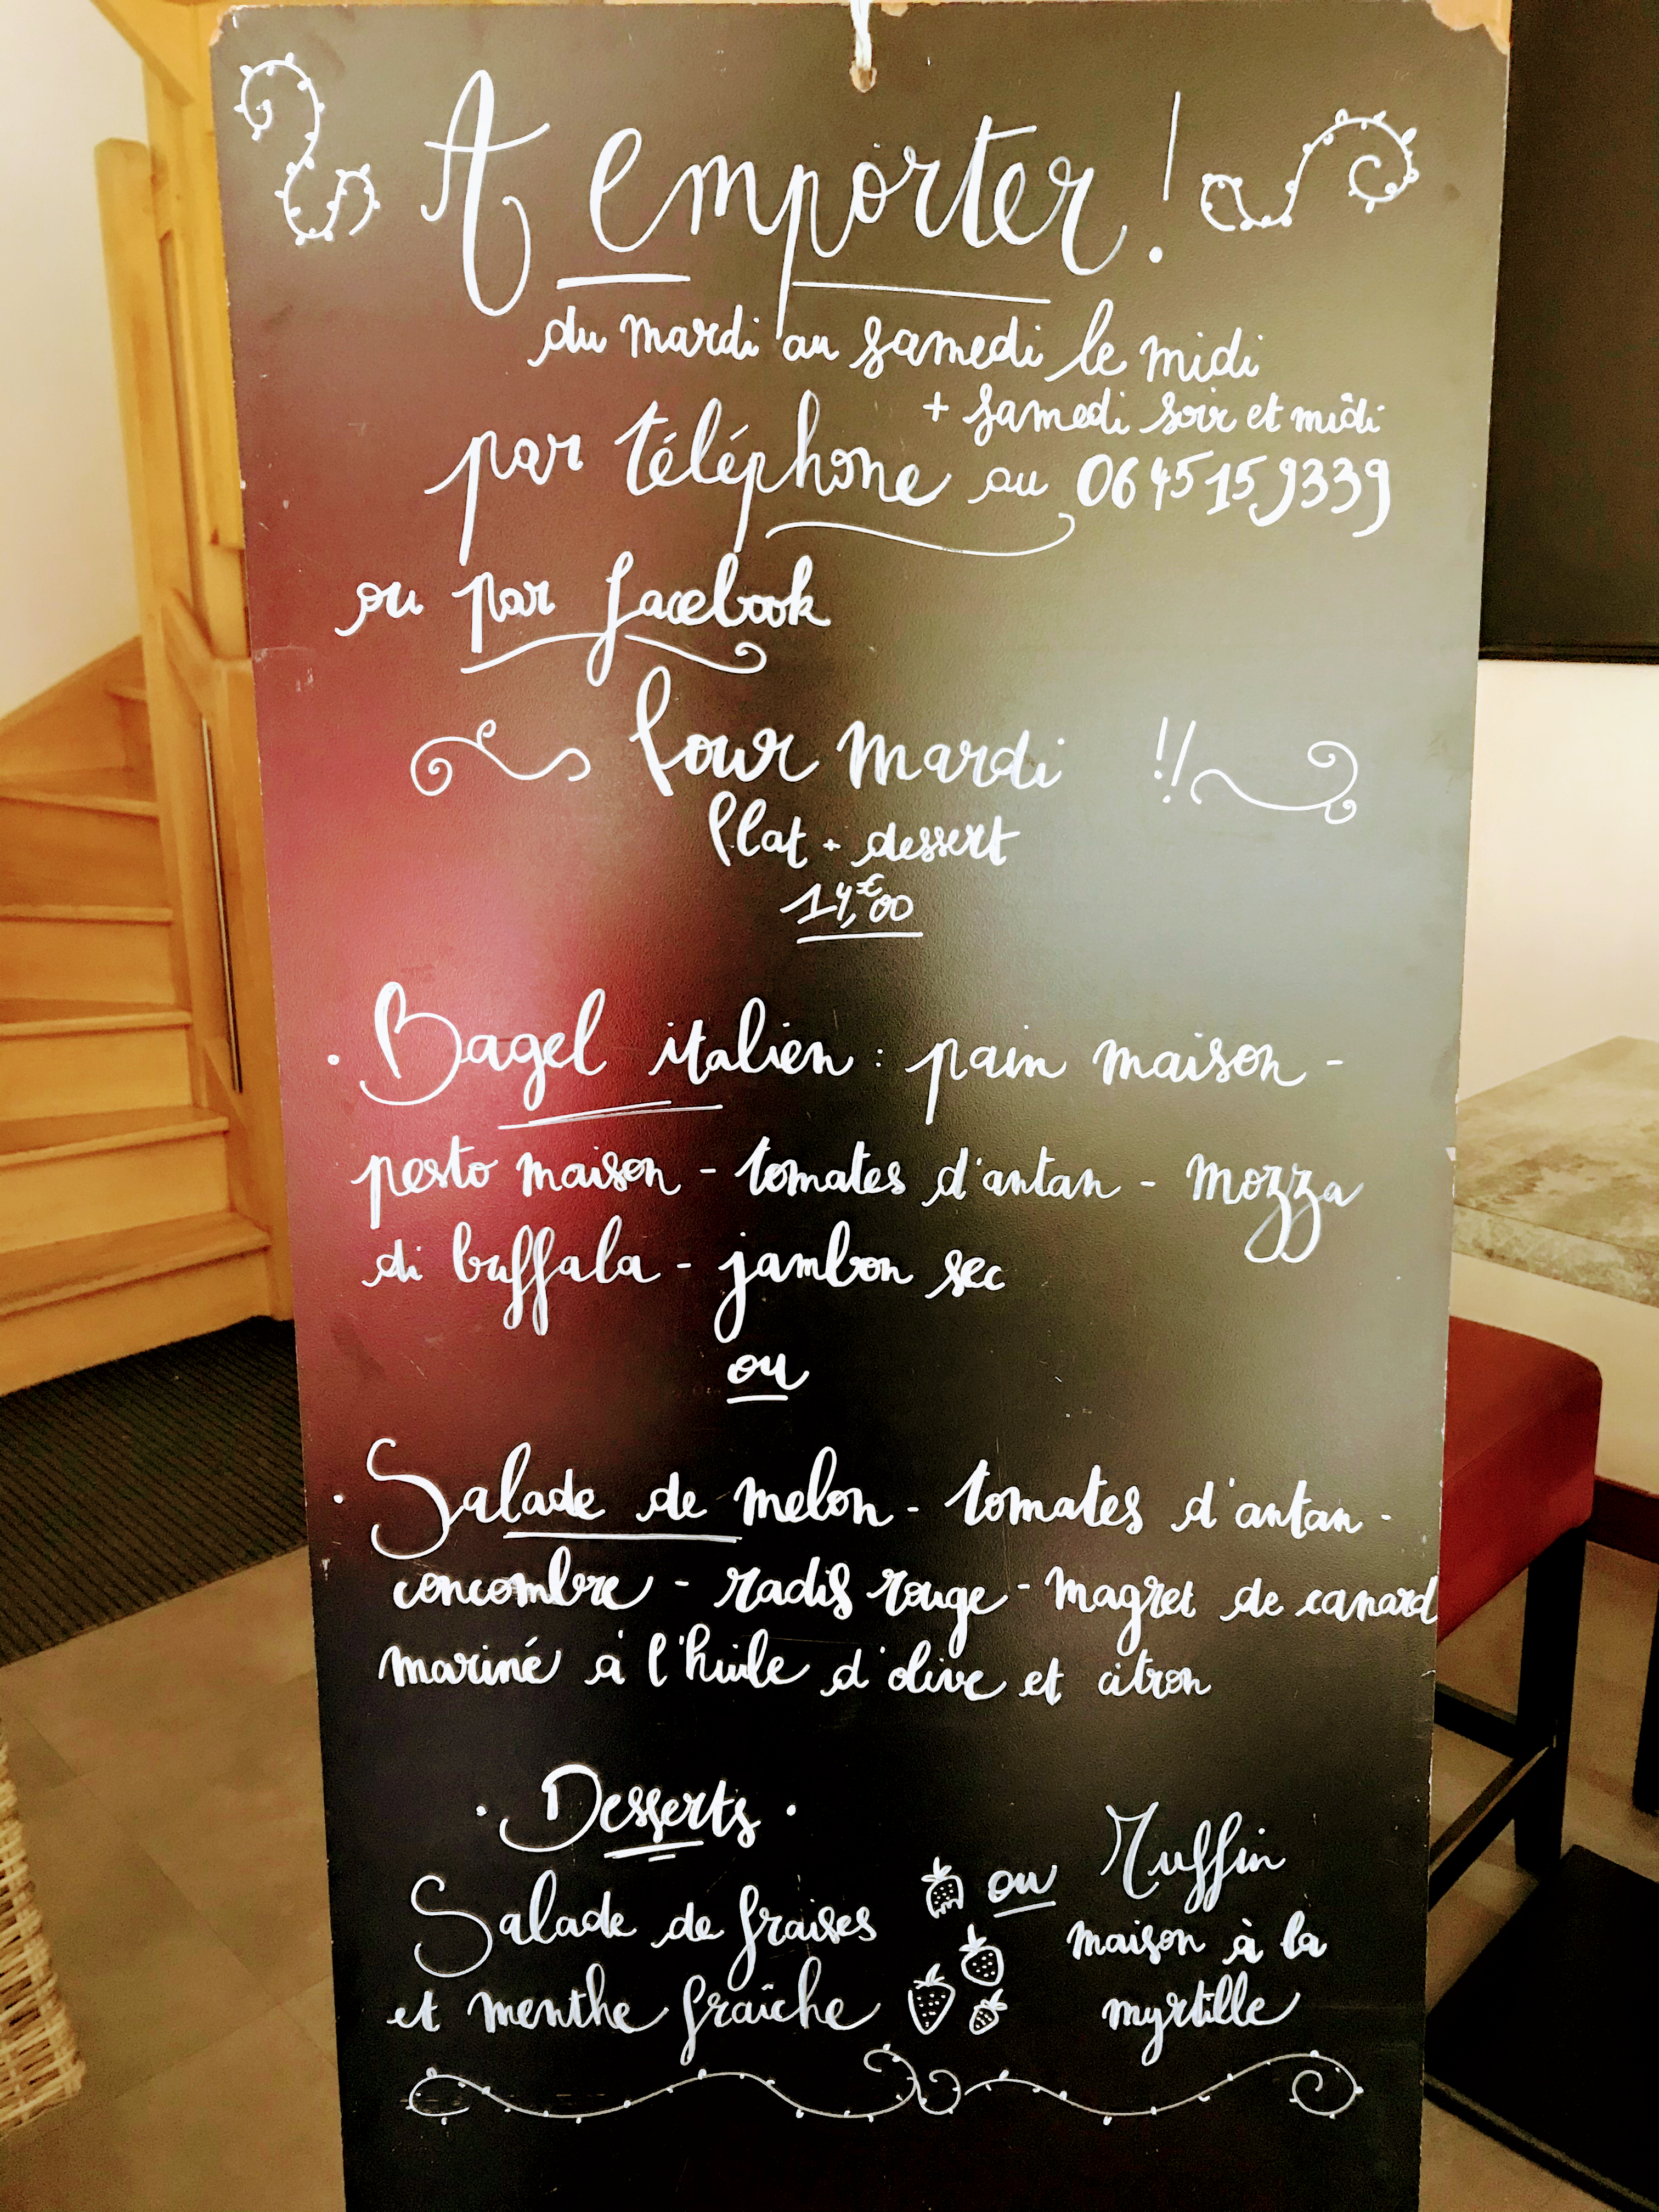 A emporter !
du mardi au samedi le midi
+ samedi soir et midi
par téléphone au 06 45 15 9339
ou par facebook
Pour mardi !!
Plat + dessert
14,€00
· Bagel italien : pain maison -
pesto maison - tomates d'antan - mozza
di buffala - jambon sec
ou
· Salade de melon - tomates d'antan -
concombre - radis rouge - magret de canard
mariné à l'huile d'olive et citron
· Desserts ·
Salade de fraises
et menthe fraîche
ou Muffin
maison à la
myrtille